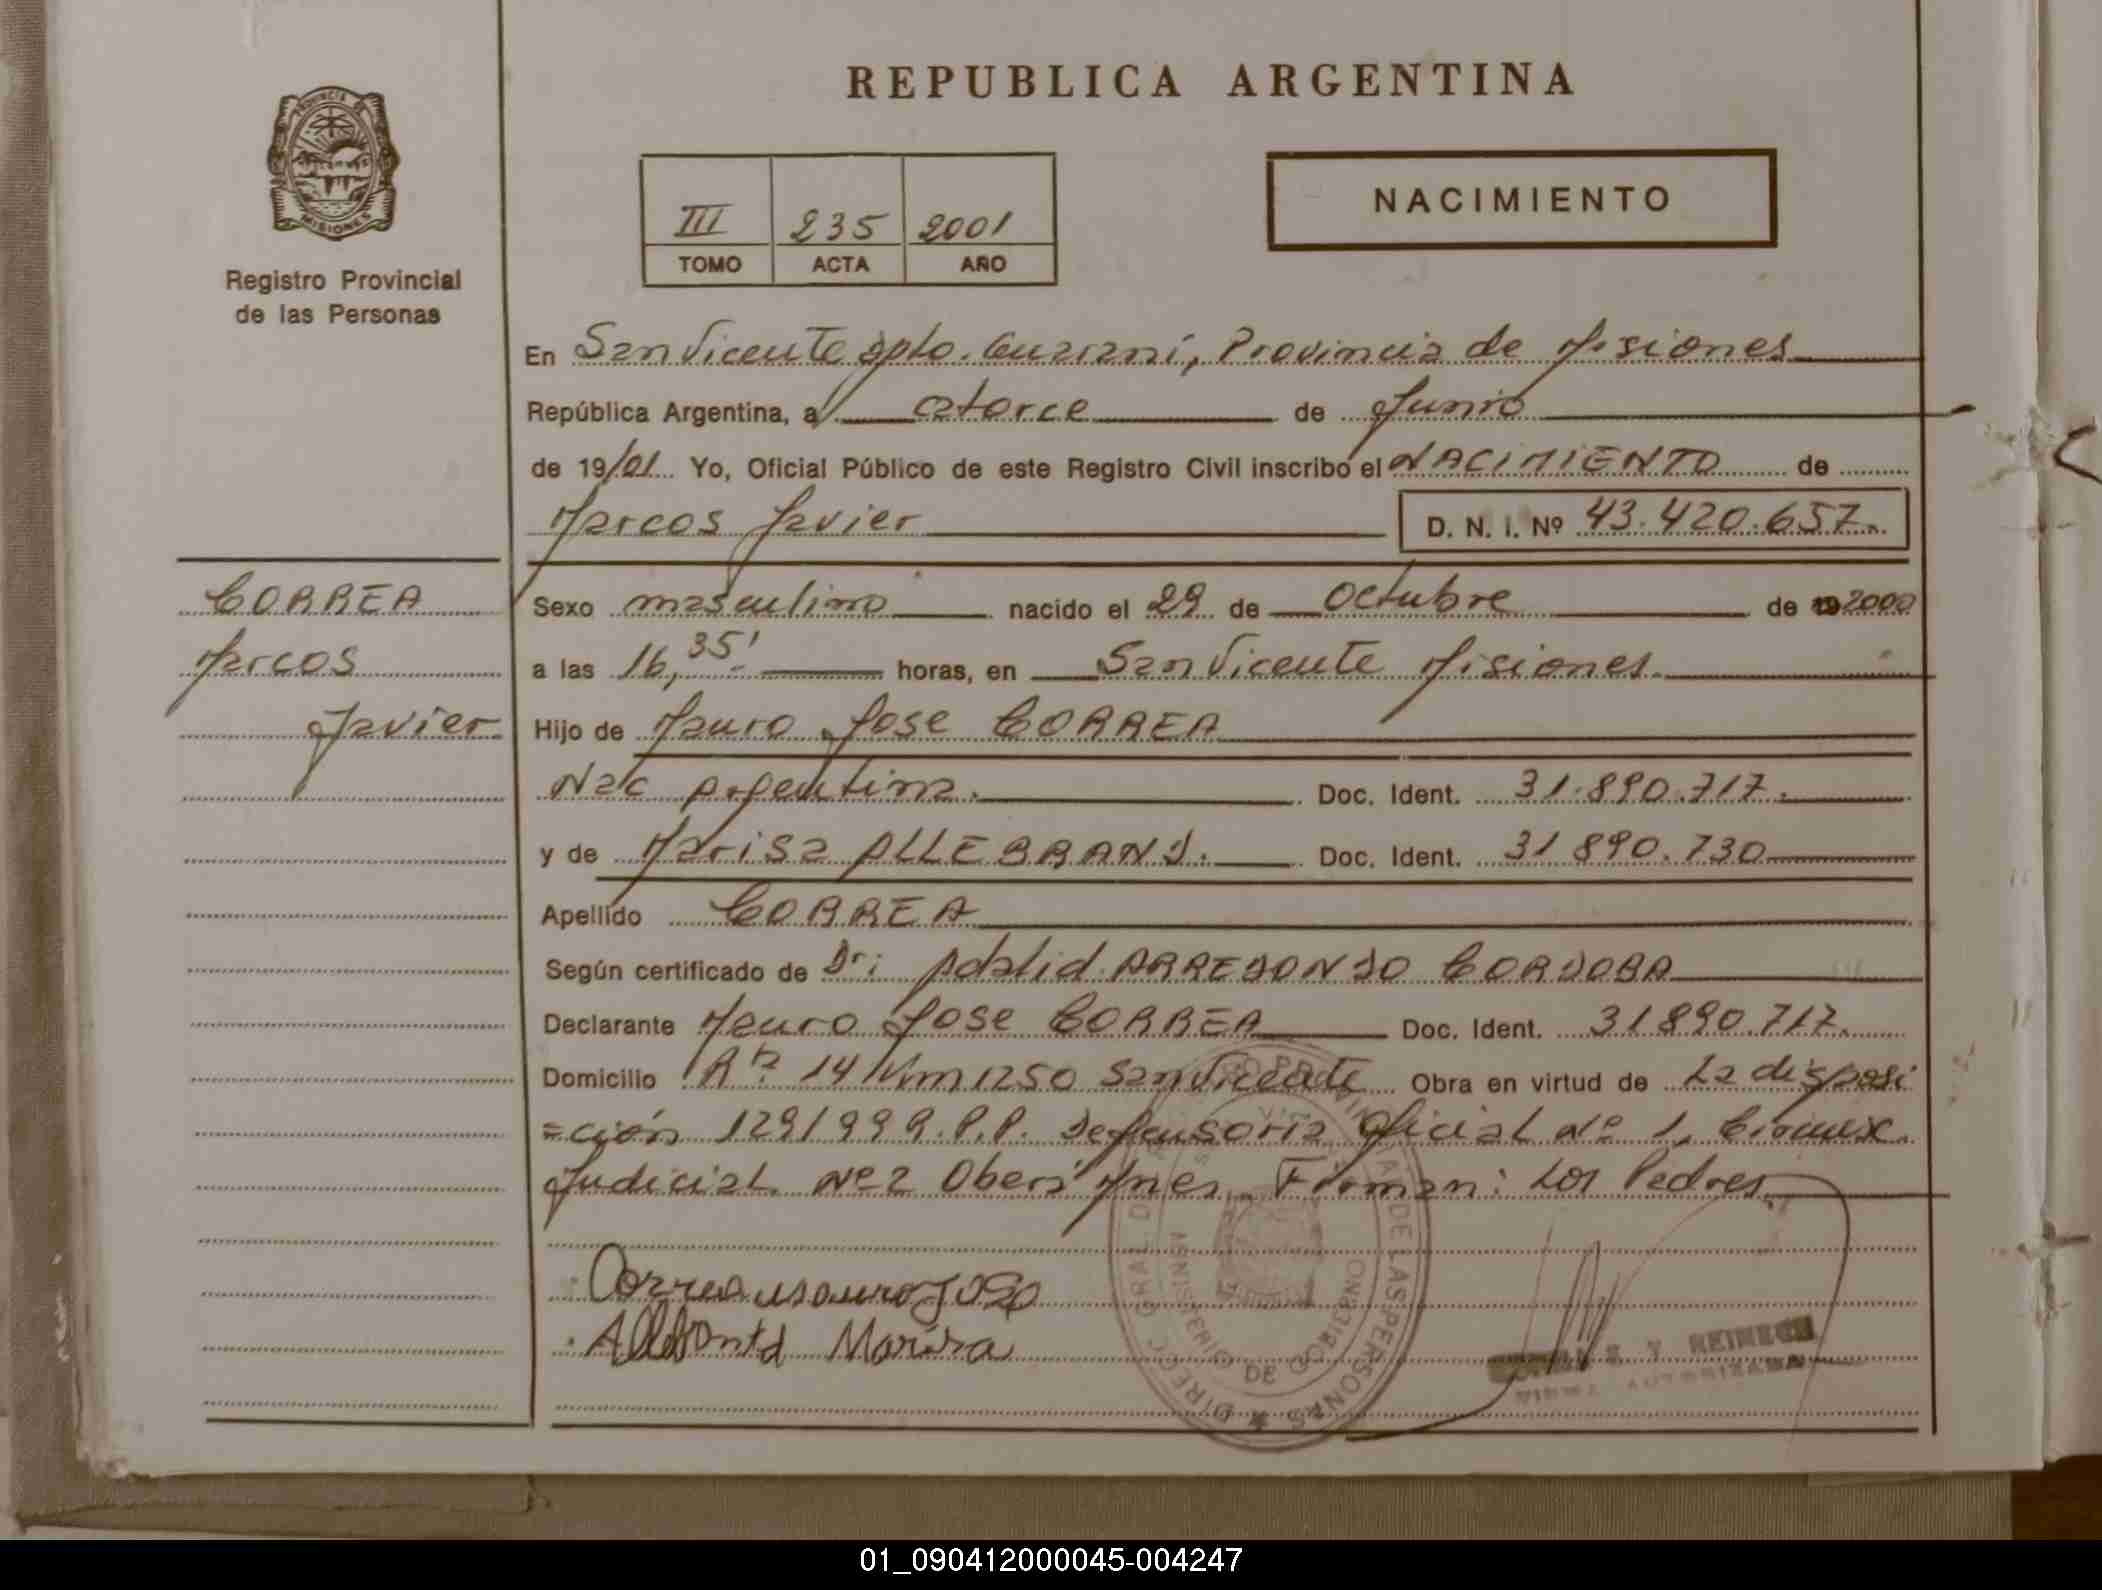 REPUBLICA ARGENTINA
PROVINCIA DE
MISIONES
Registro Provincial
de las Personas
III 235 2001
TOMO ACTA AÑO
NACIMIENTO
En San Vicente Dpto. Guaraní, Provincia de Misiones
República Argentina, a catorce de Junio
de 19/01 Yo, Oficial Público de este Registro Civil inscribo el NACIMIENTO de
Marcos Javier D. N. I. Nº 43.420.657.
CORREA
Marcos
Javier
Sexo masculino nacido el 29 de Octubre de 2000
a las 16,35' horas, en San Vicente Misiones.
Hijo de Mauro Jose CORREA
Nac Argentina. Doc. Ident. 31.890.717.
y de Marisa ALLEBRAND. Doc. Ident. 31 890.730
Apellido CORREA
Según certificado de Dr: Adalid ARREDONDO CORDOBA
Declarante Mauro Jose CORREA Doc. Ident. 31890.717.
Domicilio R 14 Km 1250 San Vicente Obra en virtud de La disposi
=ción 129/999.P.P. Defensoria Oficial Nº 1, Circunx.
Judicial Nº 2 Oberá Mnes. Firman: Los Padres
Correa Mauro Jose
Marisa
DIRECC. GRAL. DEL REG. PROVINCIAL DE LAS PERSONAS
MINISTERIO DE GOBIERNO
Y REINECK
FIRMA AUTORIZADA
01_090412000045-004247